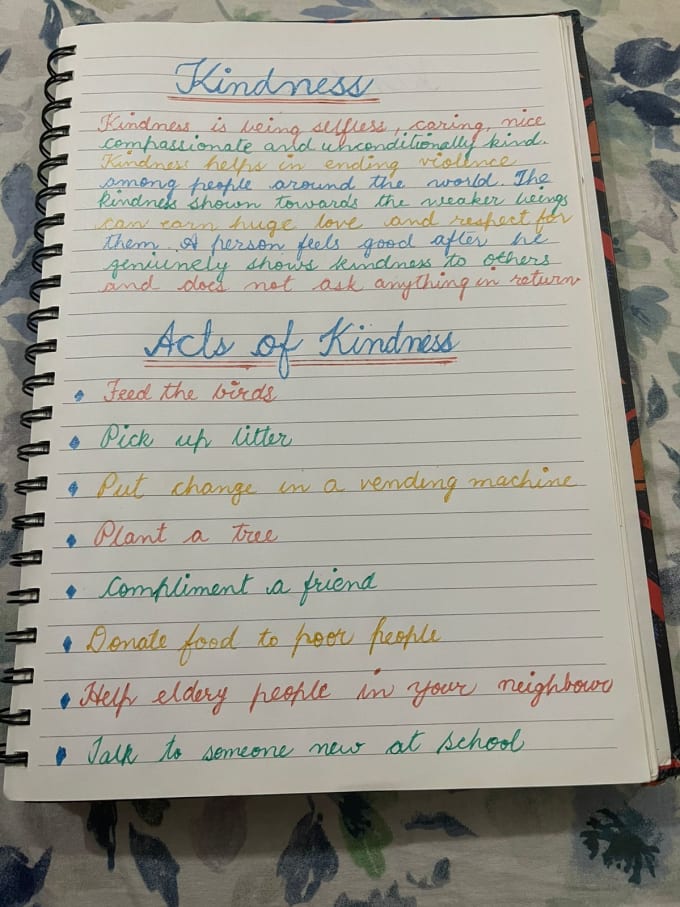 Kindness
Kindness is being selfless, caring, nice
compassionate and unconditionally kind.
Kindness helps in ending violence
among people around the world. The
kindness shown towards the weaker beings
can earn huge love and respect for
them. A person feels good after he
geniunely shows kindness to others
and does not ask anything in return
Acts of Kindness
Feed the birds
Pick up litter
Put change in a vending machine
Plant a tree
Compliment a friend
Donate food to poor people
Help eldery people in your neighbour
Talk to someone new at school